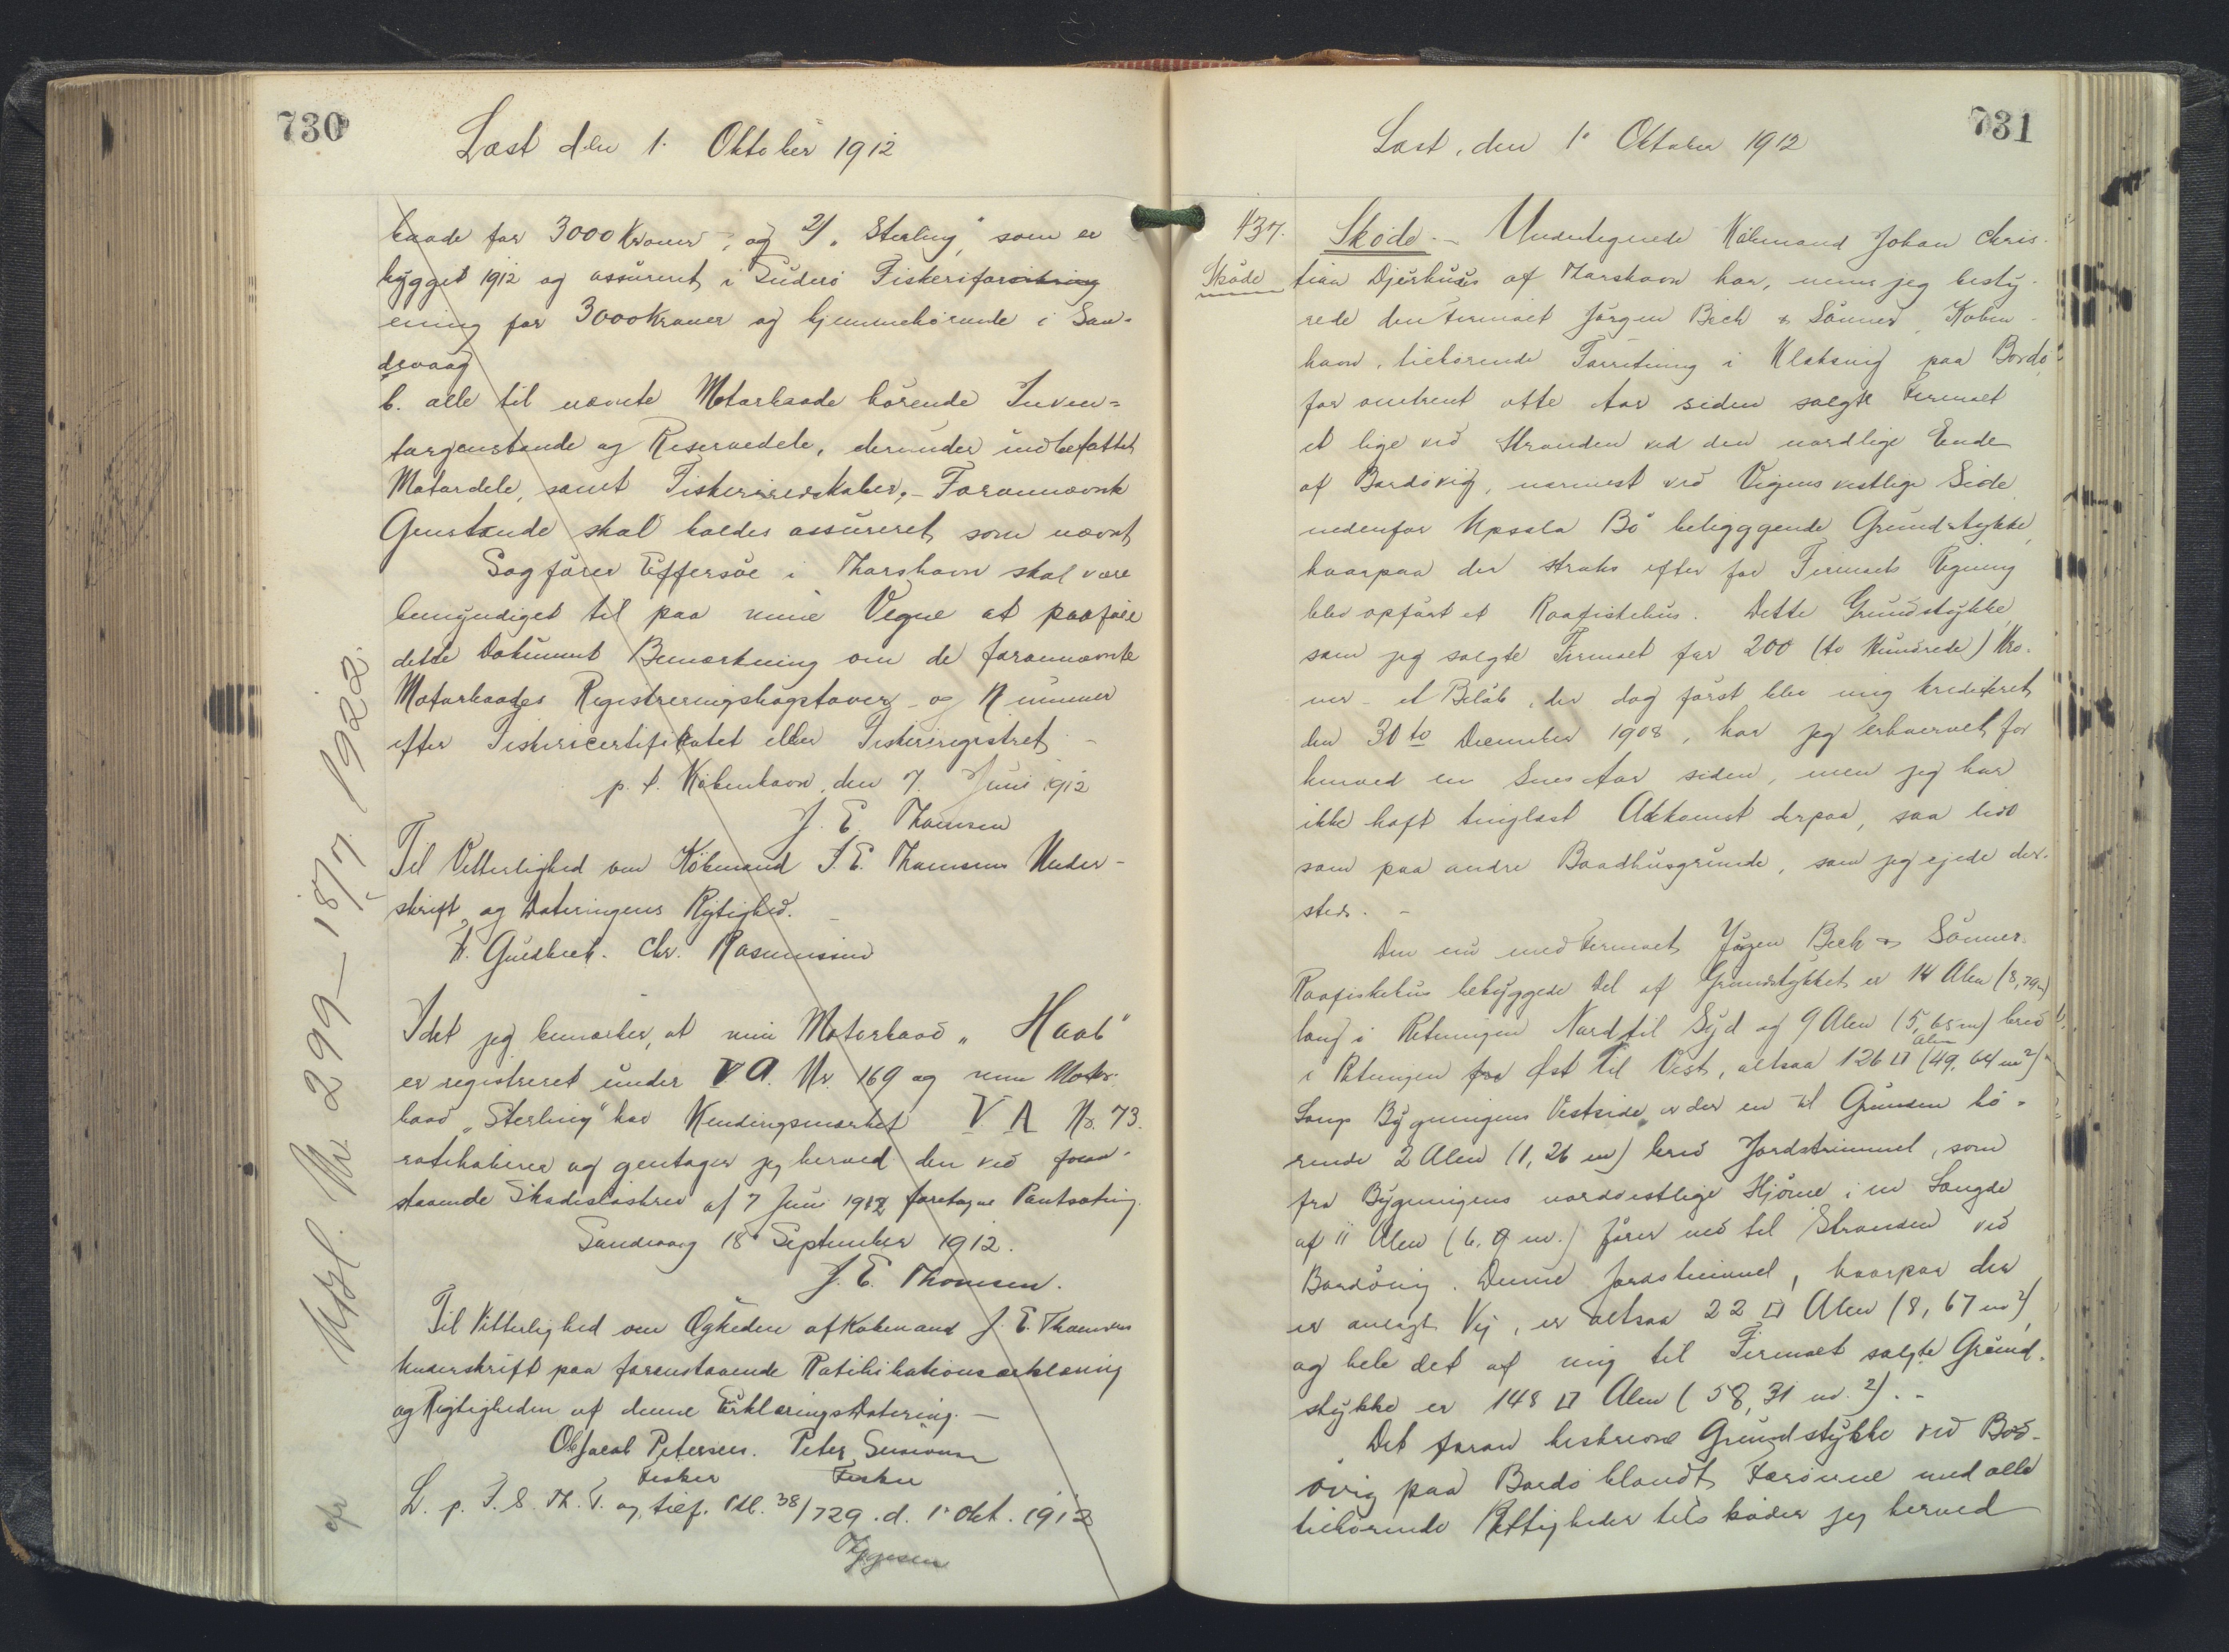 730
Læst den 1. Oktober 1912
baade for 3000 Kroner, og 2/ "Sterling" som er
bygget 1912 og assureret i Suderö Fiskeriforsikring
ening for 3000 Kroner og hjemmehörende i San-
devaag
b. alle til nævnte Motorbaade hörende Inven-
targenstande og Reservedele, derunder indbefattet
Motordele, samt Fiskeriredskaber, - Forannævnte
Genstande skal holdes assureret som nævnt
Sagförer Effersöe i Thorshavn skal være
bemyndiget til paa mine Vegne at paaföie
dette Dokument Bemærkning om de forannævnte
Motorbaades Registreringsbogstaver og Nummer
efter Fiskericertifikatet eller Fiskeriregistret -
p. t. Köbenhavn, den 7. Juni 1912
J. E. Thomsen
Til Vitterlighed om Köbmand J. E. Thomsens Under-
skrift og Dateringens Rigtighed. -
Chr. Rasmussen
Idet jeg bemærker, at min Motorbaad "Haab"
er registreret under VA. Nr. 169 og min Motor-
baad "Sterling" har Kendingsmærket VA No. 73.
ratihaberer og gentager jeg herved den ved foran-
staaende Skadeslösbrev af 7 Juni 1912 foretagne Pantsætning.
Sandevaag 18 September 1912.
J. E. Thomsen.
Til Vitterlighed om Ægtheden af Köbmand J. E. Thomsens
Underskrift paa foranstaaende Ratihibitionserklæring
og Rigtigheden af denne Erklærings Datering. -
Ole Jacob Petersen. Peter Simonsen
Fisker Fisker
L. p. F. S. Th. T. og tilf. Ptl. 38/729. d. 1. Okt. 1912
Udsl. Nr 299 - 18/7 1922.
731
Læst, den 1. Oktober 1912
437.
Sköde
Sköde. - Undertegnede Köbmand Johan Chris-
tian Djurhuus af Thorshavn har, mens jeg besty-
rede den Firmaet Jörgen Bech & Sönner, Köben-
havn, tilhörende Forretning i Klaksvig paa Bordö,
for omtrent otte Aar siden solgt Firmaet
et lige ved Stranden ved den nordlige Ende
af Bordövig, nærmest ved Vigens vestlige Side
nedenfor Upsala Bö beliggende Grundstykke,
hvorpaa der straks efter for Firmaets Regning
blev opfört et Raafiskehus. Dette Grundstykke,
som jeg solgte Firmaet for 200 (to Hundrede) Kro-
ner - et Belöb, der dog först blev mig krediteret
den 30te December 1908, har jeg erhvervet for
henved en Snes Aar siden, men jeg har
ikke haft tinglæst Adkomst derpaa, saa lidt
som paa andre Baadhusgrunde, som jeg ejede der-
steds. -
Den nu med Firmaet Jörgen Bech & Sönner
Raafiskehus bebyggede Del af Grundstykket er 14 Alen (8,79 m)
lang i Retningen Nord til Syd og 9 Alen (5,65 m) bred
i Retningen fra Öst til Vest, altsaa 126 □ Alen (49,64 m2)
Langs Bygningens Vestside er der en til Grunden hö-
rende 2 Alen (1,26 m) bred Jordstrimmel, som
fra Bygningens nordvestlige Hjörne i en Længde
af 11 Alen (6,9 m.) förer ned til Stranden ved
Bordövig. Denne Jordstrimmel, hvorpaa der
er anlagt Vej, er altsaa 22 □ Alen (8,67 m2),
og hele det af mig til Firmaet solgte Grund-
stykke er 148 □ Alen (58,31 m.2). -
Det foran beskrevne Grundstykke ved Bord-
övig paa Bordö blandt Færöerne med alle
tilhörende Rettigheder tilsköder jeg herved